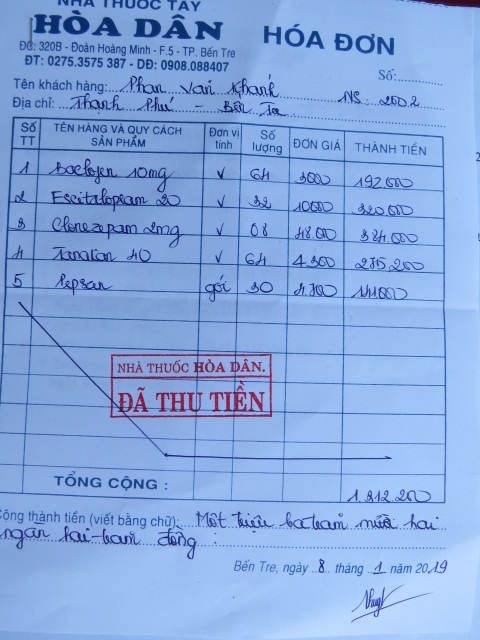 NHÀ THUỐC TÂY
HÒA DÂN
HÓA ĐƠN
ĐC: 320B - Đoàn Hoàng Minh - F.5 - TP. Bến Tre
ĐT: 0275.3575 387 - DĐ: 0908.088407
Số:
Tên khách hàng: Phan Văn Khánh NS: 2002
Địa chỉ: Thạnh Phú - Bến Tre
Số TT TÊN HÀNG VÀ QUY CÁCH SẢN PHẨM Đơn vị tính Số lượng ĐƠN GIÁ THÀNH TIỀN
1 Baclofen 10mg V 64 3000 192.000
2 Escitalopram 20 V 32 10000 320.000
3 Clonezapam 2mg V 08 48.000 384.000
4 V 64 4.300 275.200
5 Pepsan gói 30 4.700 141.000
NHÀ THUỐC HÒA DÂN.
ĐÃ THU TIỀN
TỔNG CỘNG : 1.312.200
Cộng thành tiền (viết bằng chữ): Một triệu ba trăm mười hai
ngàn hai trăm đồng
Bến Tre, ngày 8 tháng 1 năm 2019